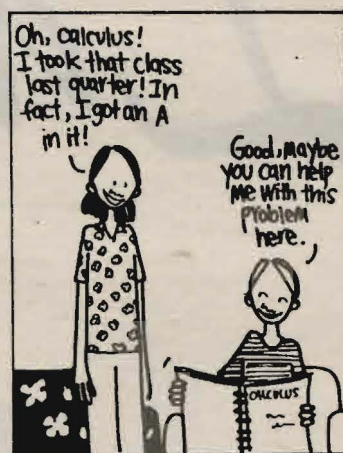 Oh, calculus!
I took that class
last quarter! In
fact, I got an A
in it!
Good, maybe
you can help
me with this
problem
here.
CALCULUS